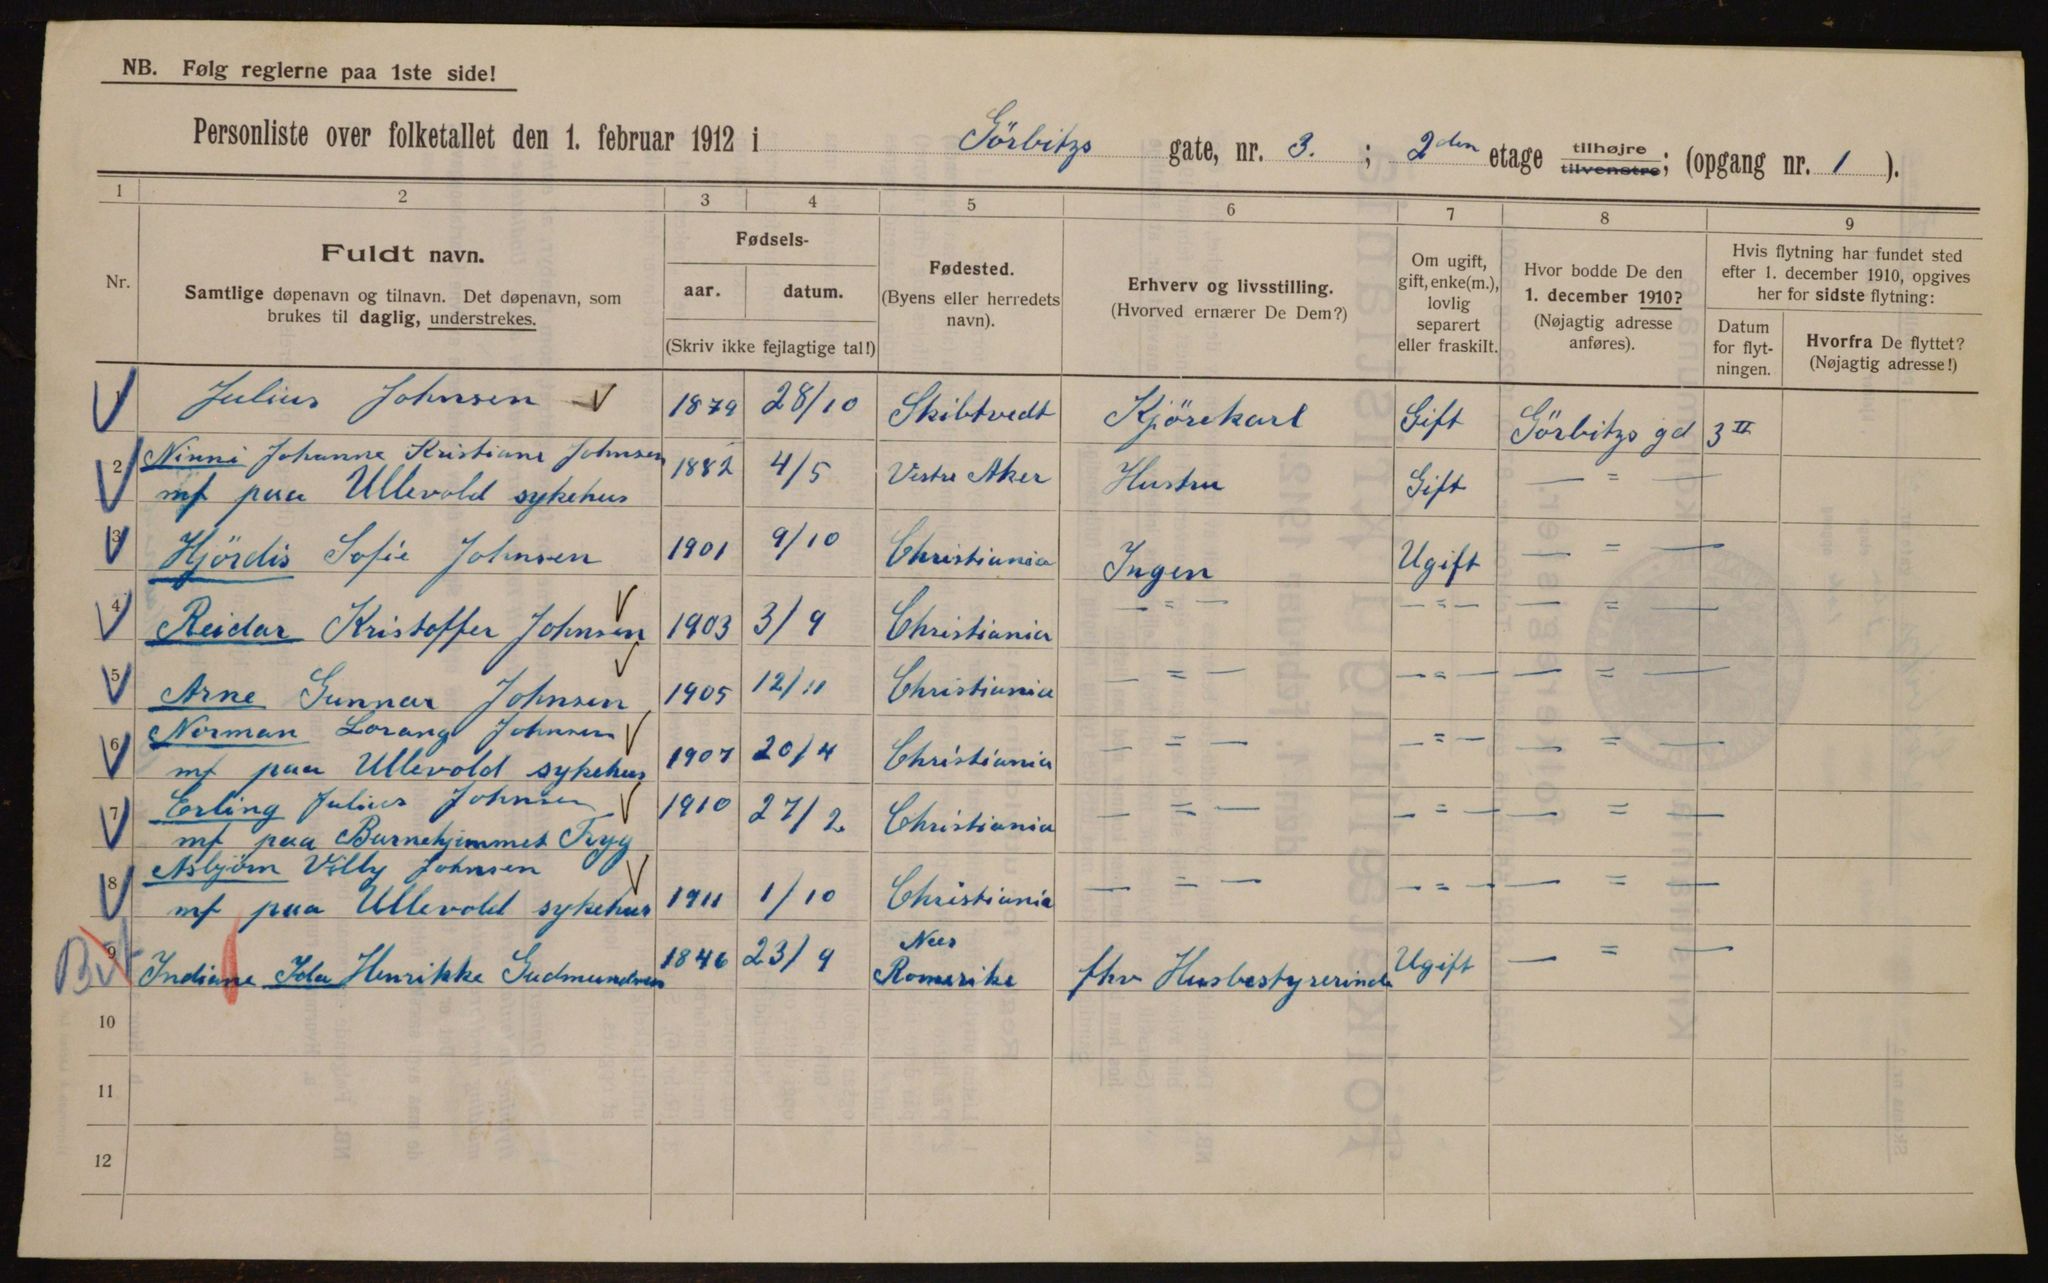 NB. Følg reglerne paa 1ste side!
Personliste over folketallet den 1. februar 1912 i Görbitzs gate, nr. 3. ; 2den etage tilhøjre tilvenstre; (opgang nr. 1 ).
1 2 3 4 5 6 7 8 9
Nr.
Fuldt navn.
Samtlige døpenavn og tilnavn. Det døpenavn, som
brukes til daglig, understrekes.
Fødsels-
aar. datum.
(Skriv ikke fejlagtige tal!)
Fødested.
(Byens eller herredets
navn).
Erhverv og livsstilling.
(Hvorved ernærer De Dem?)
Om ugift,
gift, enke(m.),
lovlig
separert
eller fraskilt.
Hvor bodde De den
1. december 1910?
(Nøjagtig adresse
anføres).
Hvis flytning har fundet sted
efter 1. december 1910, opgives
her for sidste flytning:
Datum
for flyt-
ningen.
Hvorfra De flyttet?
(Nøjagtig adresse!)
1 Julius Johnsen 1879 28/10 Skibtvedt Kjörekarl Gift Görbitzs gd 3 II
2 Ninni Johanne Kristiane Johnsen 1882 4/5 Vestre Aker Hustru Gift — = —
mf paa Ullevold sykehus
3 Hjördis Sofie Johnsen 1901 9/10 Christiania Ingen Ugift — = —
4 Reidar Kristoffer Johnsen 1903 3/9 Christiania — = — — = — — = —
5 Arne Gunnar Johnsen 1905 12/11 Christiania — = — — = — — = —
6 Norman Lorang Johnsen 1907 20/4 Christiania — = — — = — — = —
mf paa Ullevold sykehus
7 Erling Julius Johnsen 1910 27/2 Christiania — = — — = — — = —
mf paa Barnehjemmet Tryg
8 Asbjörn Villy Johnsen 1911 1/10 Christiania — = — — = — — = —
mf paa Ullevold sykehus
9 Indiane Ida Henrikke Gudmundsen 1846 23/9 Nes Romerike fhv Husbestyrerinde Ugift — = —
10
11
12